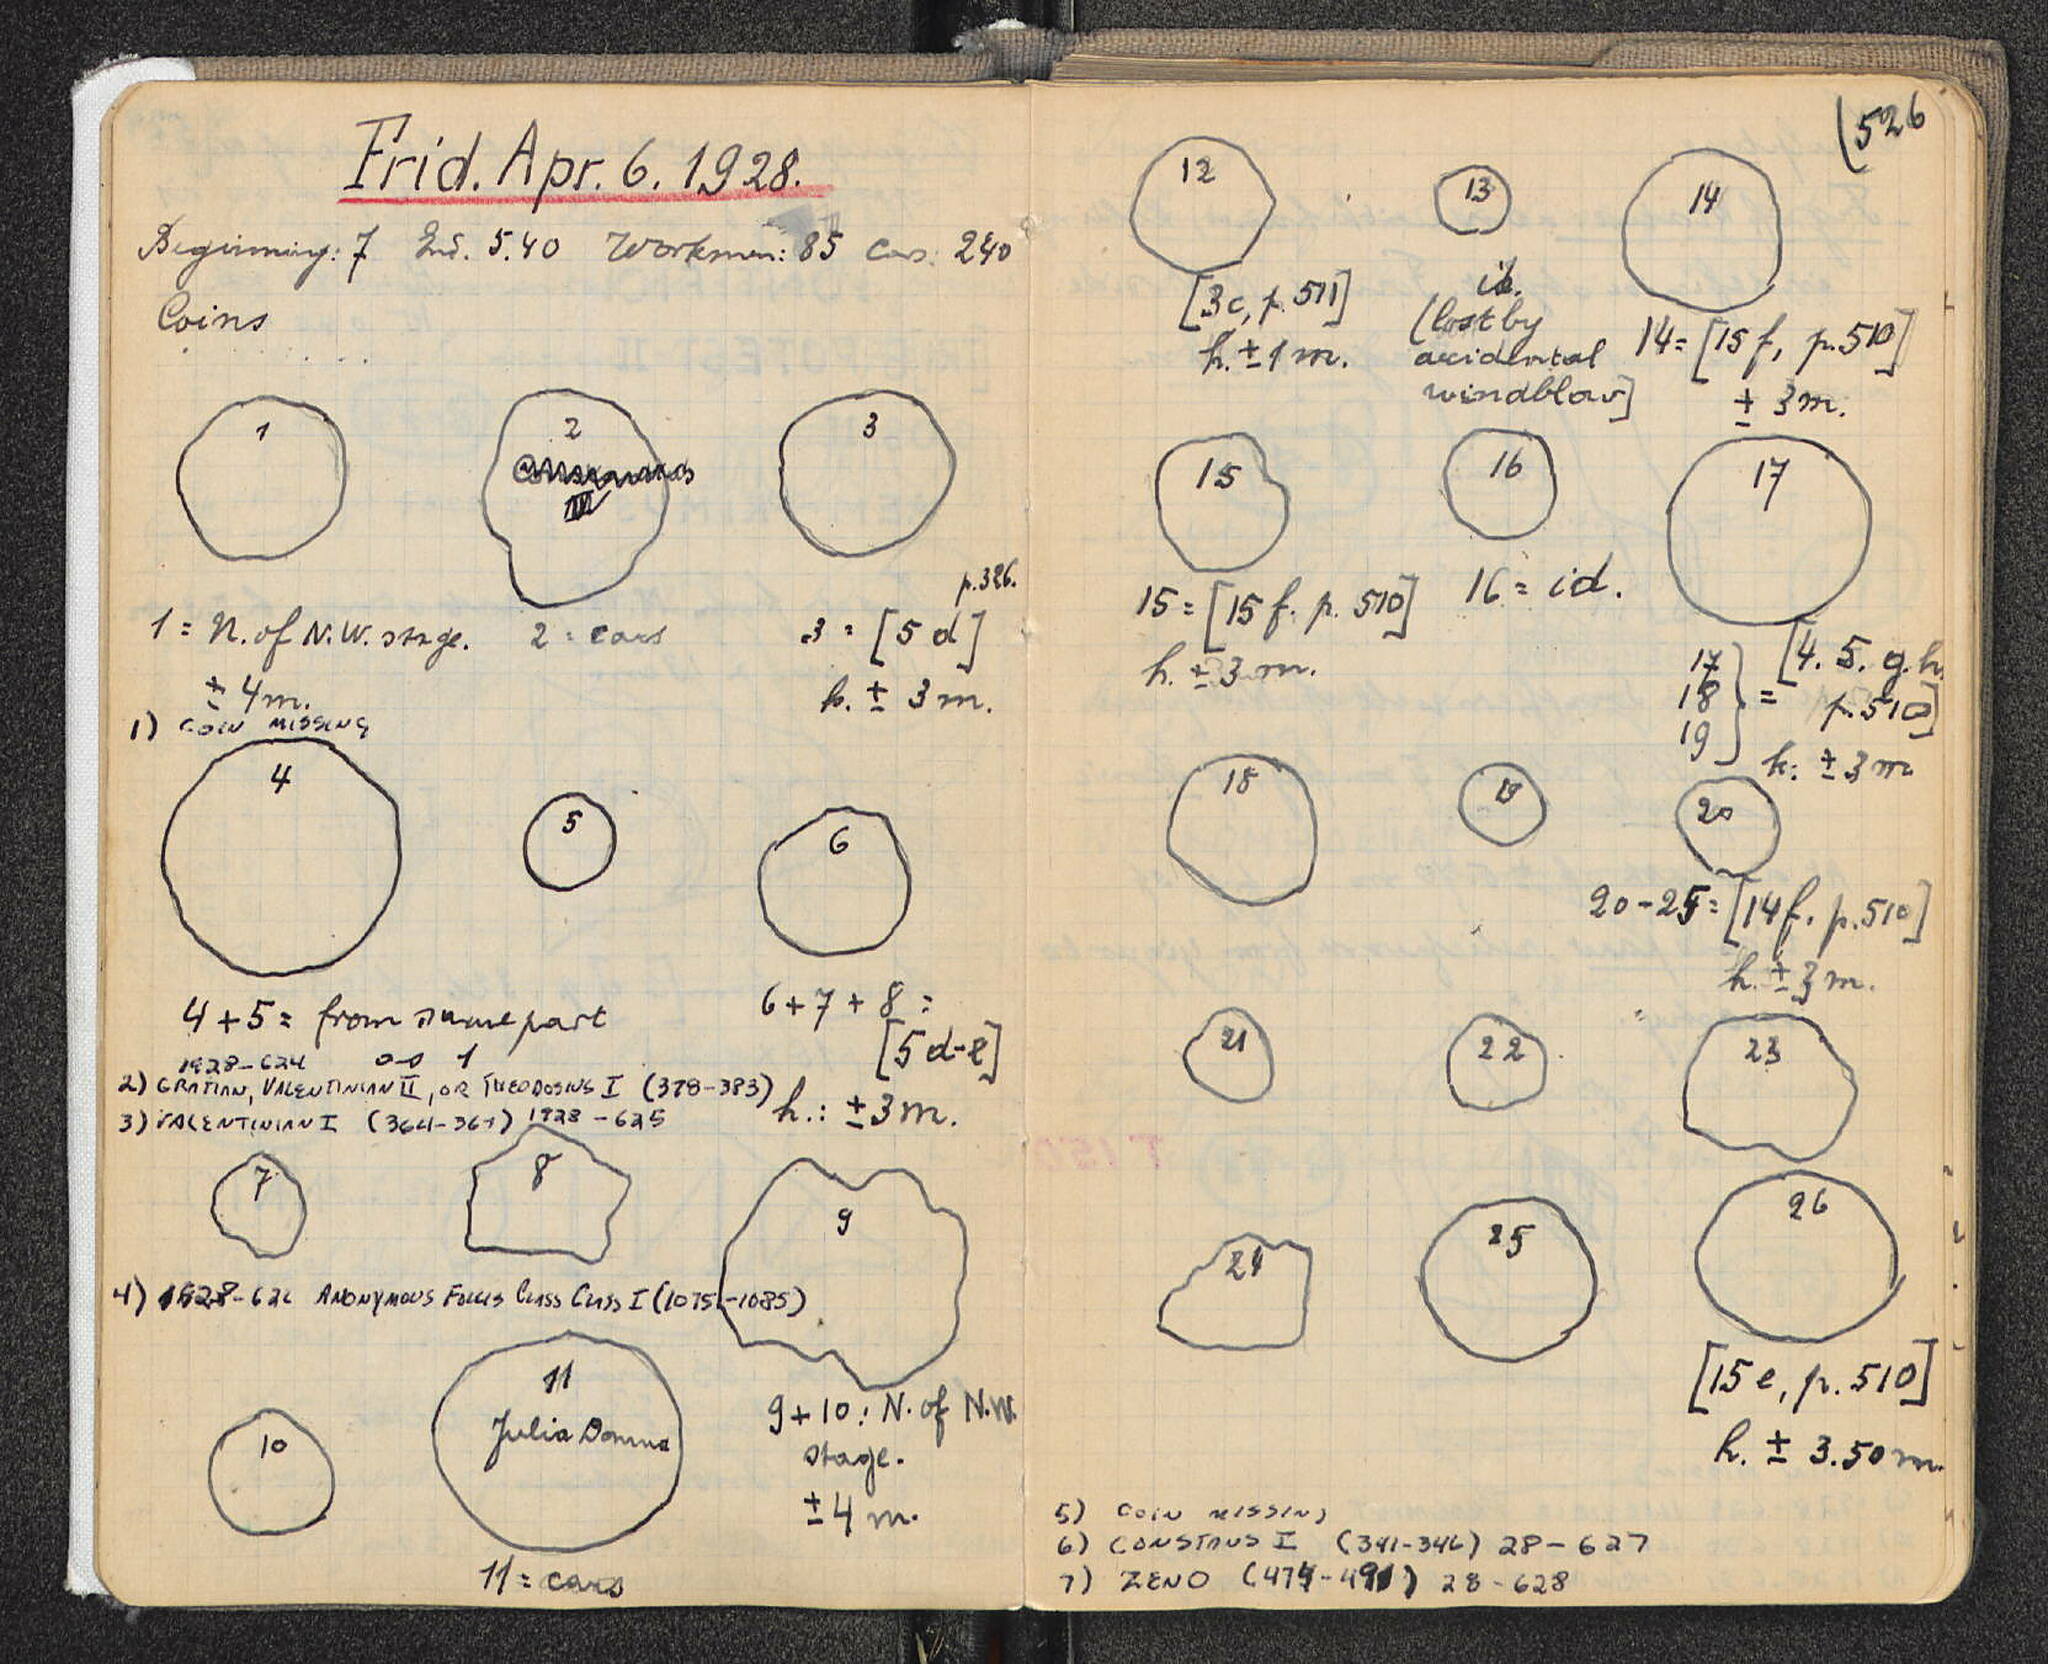 Frid. Apr. 6. 1928.
Beginning: 7 End. 5.40 Workmen: 85 Cars: 240
Coins
1
2
3
p.326.
1 = N. of N.W. stage.
± 4 m.
2 = cars
3 = [5 d]
h. ± 3 m.
1) COIN MISSING
4
5
6
4 + 5 = from same part
as 1
6 + 7 + 8 =
[5 d-e]
h.: ± 3 m.
1928-624
2) GRATIAN, VALENTINIAN II, OR THEODOSIUS I (378-383)
3) VALENTINIAN I (364-367) 1928-625
7
8
9
4) 1928-626 ANONYMOUS FOLLIS CLASS CLASS I (1075-1085)
10
11
Julia Domna
9 + 10: N. of N.W.
stage.
± 4 m.
11 = cars
(526
12
13
14
[3c, p. 511]
h. ± 1 m.
id.
(lost by
accidental
windblow]
14 = [15 f, p. 510]
± 3 m.
15
16
17
15 = [15 f. p. 510]
h. ± 3 m.
16 = id.
17
18
19
} = [4. 5. g. h.
p. 510]
h: ± 3 m
18
19
20
20 - 25 = [14 f. p. 510]
h. ± 3 m.
21
22
23
24
25
26
[15 e, p. 510]
h. ± 3.50 m.
5) COIN MISSING
6) CONSTANS I (341-346) 28-627
7) ZENO (474-491) 28-628